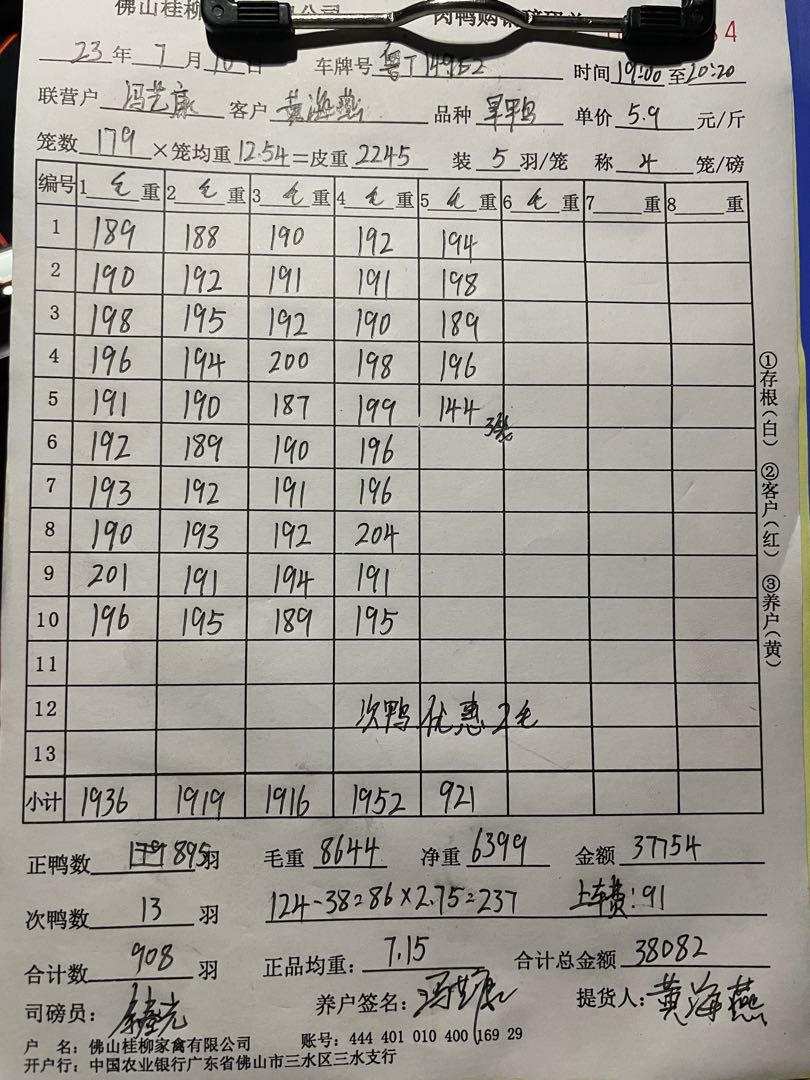 佛山桂柳 公司 肉鸭购销 34
23 年 7 月 10 日 车牌号 粤T14952 时间 19:00 至 20:20
联营户 冯艺康 客户 黄海燕 品种 旱鸭 单价 5.9 元/斤
笼数 179 ×笼均重 12.54 =皮重 2245 装 5 羽/笼 称 4 笼/磅
编号 1 毛 重 2 毛 重 3 毛 重 4 毛 重 5 毛 重 6 毛 重 7 重 8 重
1 189 188 190 192 194
2 190 192 191 191 198
3 198 195 192 190 189
4 196 194 200 198 196
5 191 190 187 199 144 3笼
6 192 189 190 196
7 193 192 191 196
8 190 193 192 204
9 201 191 194 191
10 196 195 189 195
11
12 次鸭优惠2毛
13
小计 1936 1919 1916 1952 921
①存根(白) ②客户(红) ③养户(黄)
正鸭数 895 羽 毛重 8644 净重 6399 金额 37754
次鸭数 13 羽 124-38=86×2.75=237 上车费:91
合计数 908 羽 正品均重: 7.15 合计总金额 38082
司磅员: 养户签名: 冯艺康 提货人: 黄海燕
户 名: 佛山桂柳家禽有限公司 账号: 444 401 010 400 169 29
开户行: 中国农业银行广东省佛山市三水区三水支行